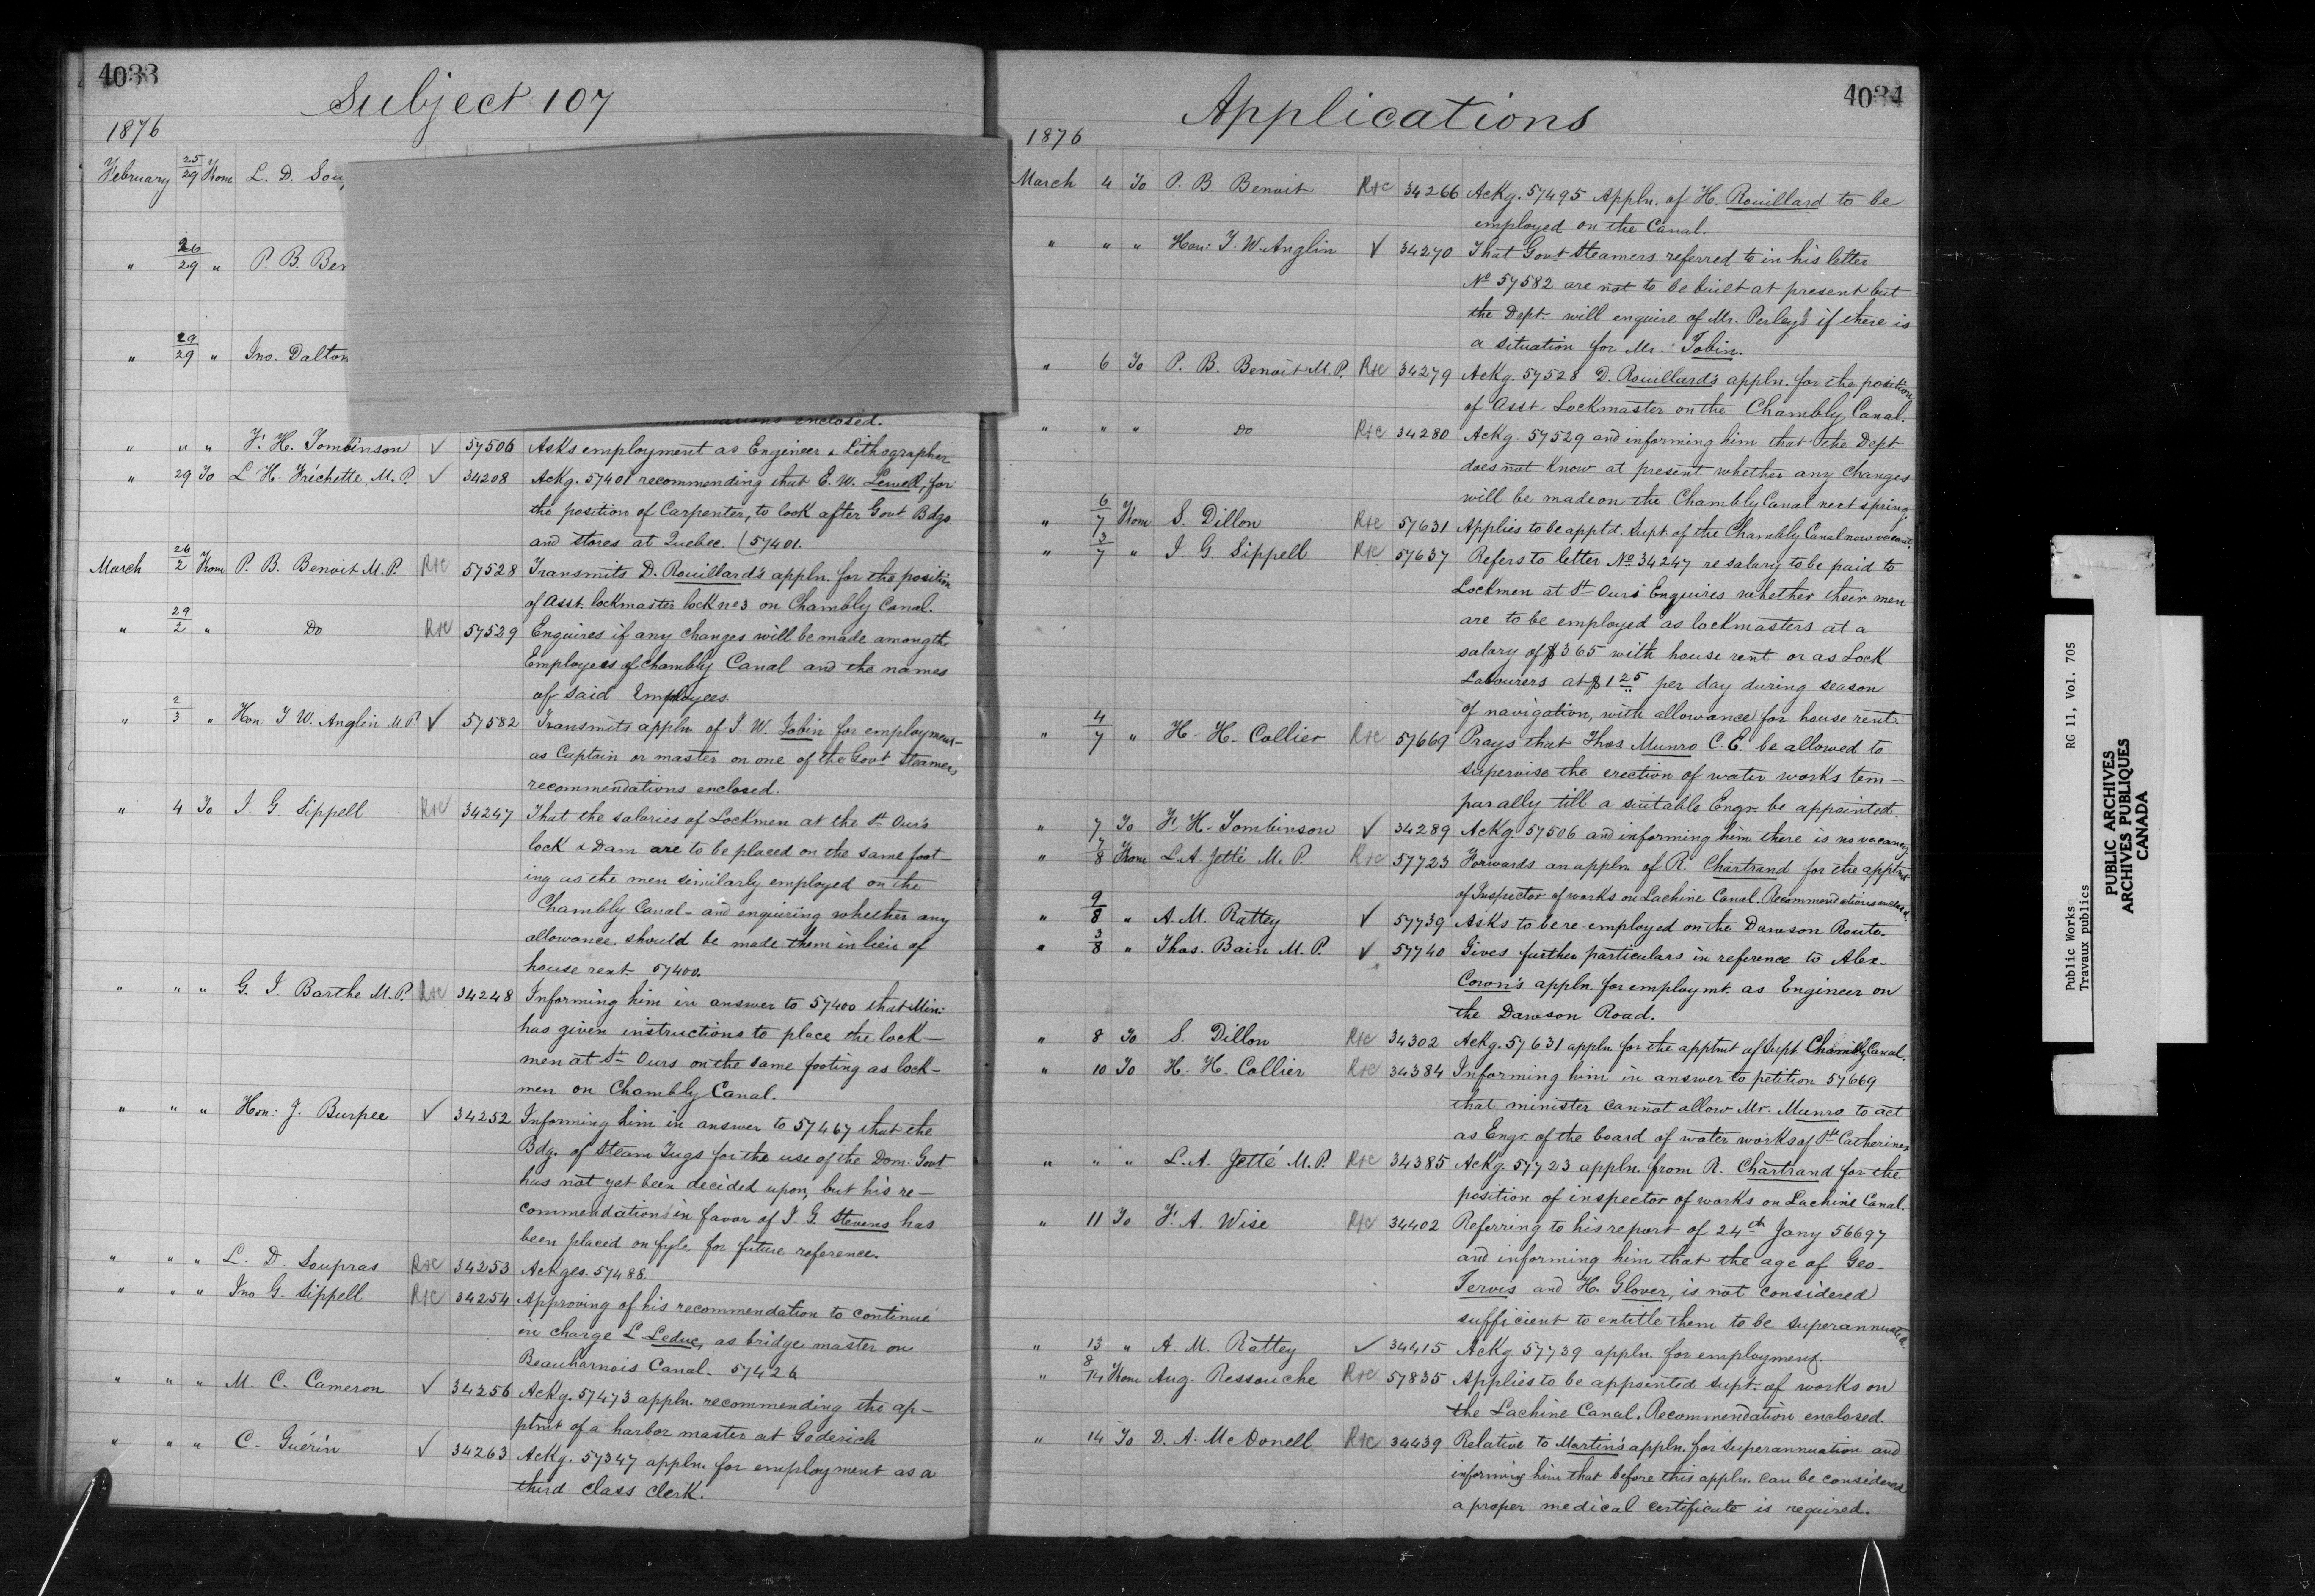 4033
Subject 107
1876
February 25/29 From L. D. Sou
" 26/29 " P. B. Ben
" 29/29 " Jno. Dalton
enclosed.
" " " F. H. Tomlinson ✓ 57506 Asks employment as Engineer & Lithographer
" 29 To L H. Fréchette, M.P. ✓ 34208 Ackg. 57401 recommending that E. W. Sewell, for
the position of Carpenter, to look after Govt Bdgs.
and stores at Quebec. (57401.
March 26/2 From P. B. Benoit M.P. R&C 57528 Transmits D. Rouillard's appln. for the position
of Asst. lockmaster lock no 3 on Chambly Canal.
" 29/2 " Do R&C 57529 Enquires if any changes will be made among the
Employees of Chambly Canal and the names
of said Employees.
" 2/3 " Hon: T. W. Anglin M.P. ✓ 57582 Transmits appln of J. W. Tobin for employment
as Captain or master on one of the Govt Steamers,
recommendations enclosed.
" 4 To J. G. Sippell R&C 34247 That the salaries of Lockmen at the St Our's
lock & Dam are to be placed on the same foot-
ing as the men similarly employed on the
Chambly Canal - and enquiring whether any
allowance should be made them in lieu of
house rent 57400.
" " " G. I. Barthe M.P. R&C 34248 Informing him in answer to 57400 that Min:
has given instructions to place the lock-
men at St Ours on the same footing as lock-
men on Chambly Canal.
" " " Hon: J. Burpee ✓ 34252 Informing him in answer to 57467 that the
Bdg. of Steam Tugs for the use of the Dom: Govt
has not yet been decided upon, but his re-
commendations in favor of J. G. Stevens has
been placed on fyle for future reference.
" " " L. D. Soupras R&C 34253 Ackges. 57488.
" " " Jno G. Sippell R&C 34254 Approving of his recommendation to continue
in charge L. Leduc, as bridge master on
Beauharnois Canal. 57426
" " " M. C. Cameron ✓ 34256 Ackg. 57473 appln. recommending the ap-
ptmt of a harbor master at Goderich
" " " C. Guérin ✓ 34263 Ackg. 57347 appln. for employment as a
third class clerk.
4034
Applications
1876
March 4 To P. B. Benoit R&C 34266 Ackg. 57495 Appln. of H. Rouillard to be
employed on the Canal.
" " " Hon: T. W. Anglin ✓ 34270 That Govt Steamers referred to in his letter
No 57582 are not to be built at present but
the Dept. will enquire of Mr. Perley's if there is
a situation for Mr. Tobin.
" 6 To P. B. Benoit M.P. R&C 34279 Ackg. 57528 D. Rouillard's appln. for the position
of Asst. Lockmaster on the Chambly Canal.
" " " Do R&C 34280 Ackg. 57529 and informing him that the Dept
does not know at present whether any changes
will be made on the Chambly Canal next spring
" 6/7 From S. Dillon R&C 57631 Applies to be apptd. Supt. of the Chambly Canal now vacant.
" 3/7 " J. G. Sippell R&C 57637 Refers to letter No. 34247 re salary to be paid to
Lockmen at St Ours Enquires whether their men
are to be employed as lockmasters at a
salary of $365 with house rent or as Lock
Labourers at $1 25 per day during season
of navigation, with allowance for house rent.
" 4/7 " H. H. Collier R&C 57669 Prays that Thos Munro C.E. be allowed to
supervise the erection of water works tem-
parally till a suitable Engr. be appointed.
" 7 To F. H. Tomlinson ✓ 34289 Ackg 57506 and informing him there is no vacancy
" 7/8 From L. A. Jetté M. P. R&C 57723 Forwards an appln. of R. Chartrand for the apptmt
of Inspector of works on Lachine Canal. Recommendations enclosed.
" 9/8 " A. M. Rattey ✓ 57739 Asks to be re-employed on the Dawson Route.
" 3/8 " Thos. Bain M.P. ✓ 57740 Gives further particulars in reference to Alex.
Cown's appln. for employmt. as Engineer on
the Dawson Road.
" 8 To S. Dillon R&C 34302 Ackg. 57631 appln for the apptmt of Supt. Chambly Canal.
" 10 To H. H. Collier R&C 34384 Informing him in answer to petition 57669
that minister cannot allow Mr. Munro to act
as Engr. of the board of water works of St Catherines
" " " L. A. Jetté M.P. R&C 34385 Ackg. 57723 appln. from R. Chartrand for the
position of inspector of works on Lachine Canal.
" 11 To F. A. Wise R&C 34402 Referring to his report of 24th Jany 56697
and informing him that the age of Geo.
Jervis and H. Glover, is not considered
sufficient to entitle them to be superannuated
" 13 " A. M. Rattey ✓ 34415 Ackg 57739 appln. for employment.
" 8/14 From Aug. Ressouche R&C 57835 Applies to be appointed supt. of works on
the Lachine Canal. Recommendation enclosed.
" 14 To D. A. McDonell R&C 34439 Relative to Martin's appln. for superannuation and
informing him that before this appln. can be considered
a proper medical certificate is required.
Public Works RG 11, Vol. 705
Travaux publics
PUBLIC ARCHIVES
ARCHIVES PUBLIQUES
CANADA